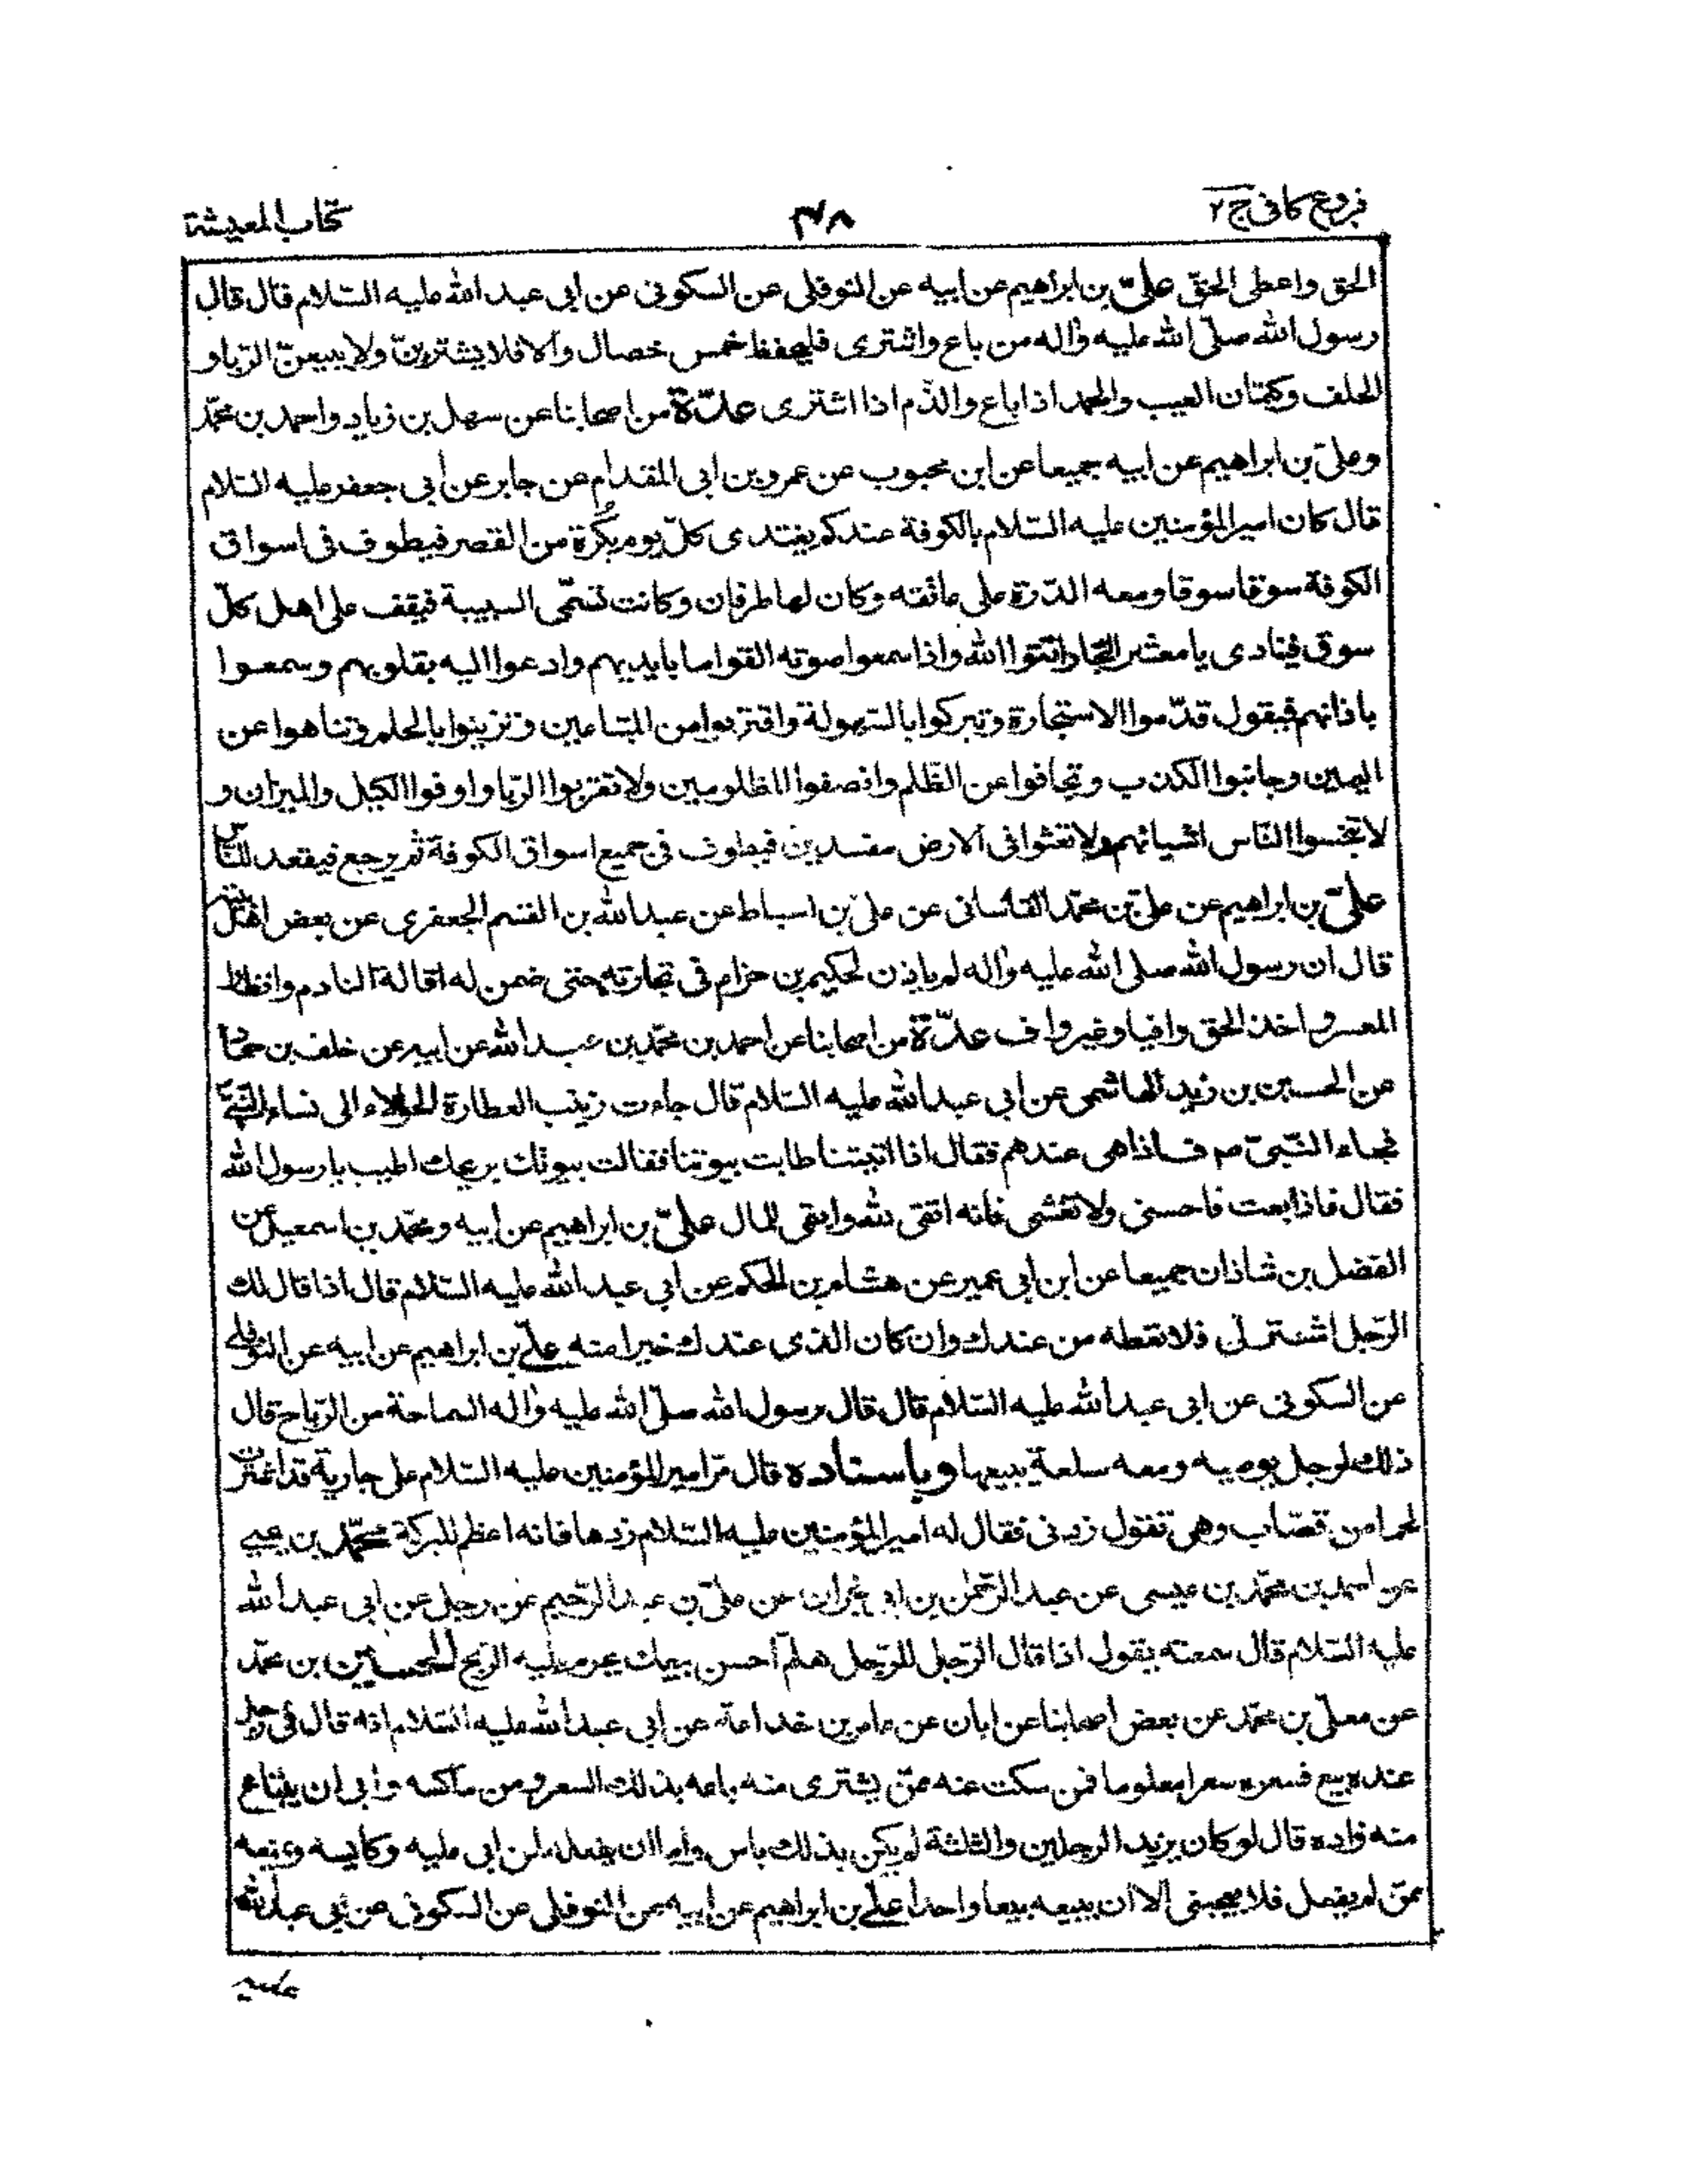 فروع كافى ج ٢
٣٧٨
كتاب المعيشة
الحق واعطى الحق علىّ بن ابراهيم عن ابيه عن النوفلى عن السكونى عن ابى عبد الله عليه السّلام قال قال
رسول الله صلّى الله عليه وآله من باع واشترى فليحفظ خمس خصال والا فلا يشترينّ ولا يبيعنّ الرّبا و
الحلف وكتمان العيب والحمد اذا باع والذّم اذا اشترى عدّة من اصحابنا عن سهل بن زياد واحمد بن محمّد
وعلىّ بن ابراهيم عن ابيه جميعا عن ابن محبوب عن عمرو بن ابى المقدام عن جابر عن ابى جعفر عليه السّلام
قال كان امير المؤمنين عليه السّلام بالكوفة عندكم يغتدى كلّ يوم بكرة من القصر فيطوف فى اسواق
الكوفة سوقا سوقا ومعه الدّرة على عاتقه وكان لها طرفان وكانت تسمّى السبيبة فيقف على اهل كلّ
سوق فينادى يا معشر التجار اتقوا الله واذا سمعوا صوته القوا ما بايديهم وادعوا اليه بقلوبهم وسمعوا
باذانهم فيقول قدّموا الاستخارة وتبركوا بالسّهولة واقتربوا من المبتاعين وتزينوا بالحلم وتناهوا عن
اليمين وجانبوا الكذب وتجافوا عن الظّلم وانصفوا المظلومين ولا تقربوا الرّبا واوفوا الكيل والميزان و
لا تبخسوا النّاس اشيائهم ولا تعثوا فى الارض مفسدين فيطوف فى جميع اسواق الكوفة ثم يرجع فيقعد للنّاس
علىّ بن ابراهيم عن علىّ بن محمّد القاسانى عن علىّ بن اسباط عن عبد الله بن القسم الجعفرى عن بعض اهل بيته
قال ان رسول الله صلى الله عليه وآله لم ياذن لحكيم بن حزام فى تجارته حتى ضمن له اقالة النادم وانظار
المعسر واخذ الحق وافيا وغير واف عدّة من اصحابنا عن احمد بن محمّد بن عبد الله عن ابيه عن خلف بن حماد
عن الحسين بن زيد الهاشمى عن ابى عبد الله عليه السّلام قال جاءت زينب العطارة الحولاء الى نساء النّبىّ
فجاء النّبىّ ص فاذا هى عندهم فقال اذا اتيتنا طابت بيوتنا فقالت بيوتك بريحك اطيب يا رسول الله
فقال فاذا بعت فاحسنى ولا تغشى فانه اتقى لله وابقى للمال علىّ بن ابراهيم عن ابيه ومحمّد بن اسمعيل عن
الفضل بن شاذان جميعا عن ابن ابى عمير عن هشام بن الحكم عن ابى عبد الله عليه السّلام قال اذا قال لك
الرّجل اشتر لى فلا تعطه من عندك وان كان الذى عندك خيرا منه علىّ بن ابراهيم عن ابيه عن النوفلى
عن السكونى عن ابى عبد الله عليه السّلام قال قال رسول الله صلّى الله عليه وآله السماحة من الرّباح قال
ذلك لرجل يوصيه ومعه سلعة يبيعها وباسناده قال مرّ امير المؤمنين عليه السّلام على جارية قد اشترت
لحما من قصّاب وهى تقول زدنى فقال له امير المؤمنين عليه السّلام زدها فانه اعظم للبركة محمّد بن يحيى
عن احمد بن محمّد بن عيسى عن عبد الرّحمن بن ابى نجران عن علىّ بن عبد الرّحيم عن رجل عن ابى عبد الله
عليه السّلام قال سمعته يقول اذا قال الرّجل للرّجل هلمّ احسن بيعك يحرم عليه الرّبح الحسين بن محمّد
عن معلّى بن محمّد عن بعض اصحابنا عن ابان عن عامر بن خداعة عن ابى عبد الله عليه السّلام انه قال فى رجل
عنده بيع فسعره سعرا معلوما فمن سكت عنه ممّن يشترى منه باعه بذلك السعر ومن ماكسه وابى ان يبتاع
منه زاده قال لو كان يزيد الرجلين والثلثة لم يكن بذلك باس واما ان يفعله لمن ابى عليه وكايسه ويمنعه
ممّن لم يفعل فلا يعجبنى الا ان يبيعه بيعا واحدا علىّ بن ابراهيم عن ابيه عن النوفلى عن السكونى عن ابى عبد الله
عليه